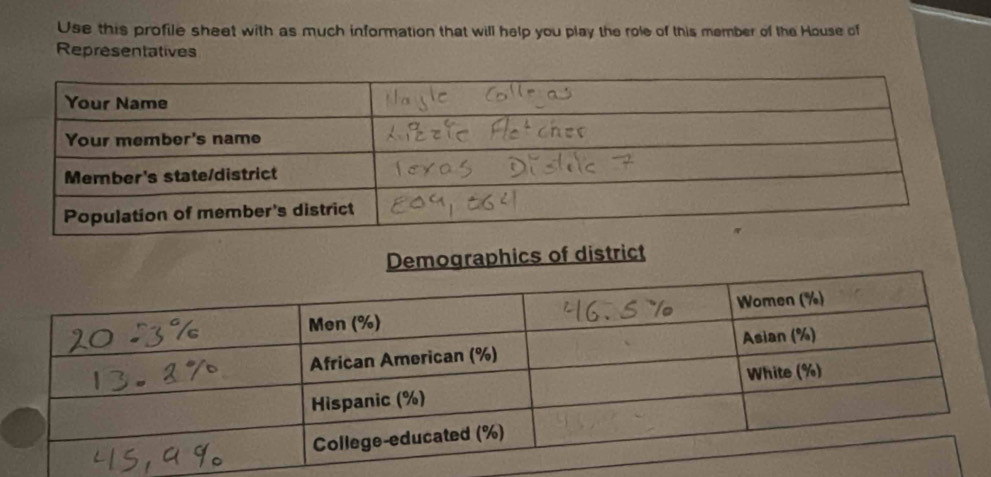 Use this profile sheet with as much information that will help you play the role of this member of the House of
Representatives
Your Name
Your member's name Lizzie Fletcher
Member's state/district Texas Distric 7
Population of member's district
Demographics of district
20.3% Men (%) 46.5% Women (%)
13.2% African American (%) Asian (%)
Hispanic (%) White (%)
45,9% College-educated (%)